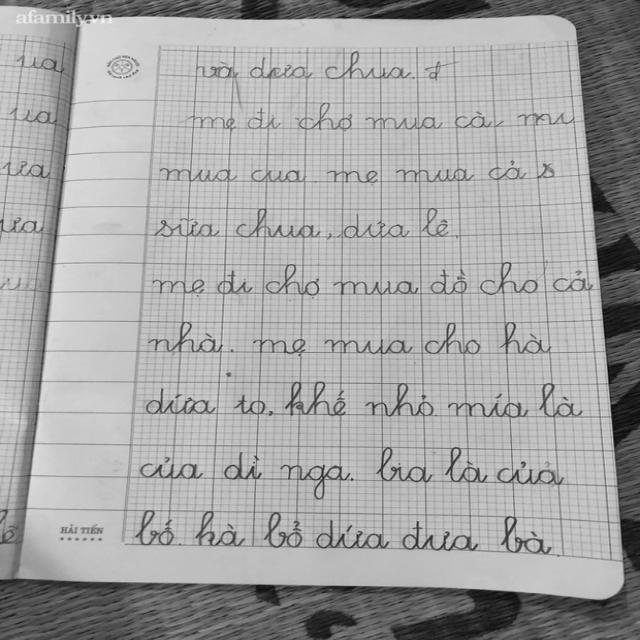 afamily.vn
ua
ua
ưa
ưa
và dưa chua.
mẹ đi chợ mua cà,
mua cua. mẹ mua cả s
sữa chua, dưa lê.
mẹ đi chợ mua đồ cho cả
nhà. mẹ mua cho hà
dứa to, khế nhỏ mía là
của dì nga. bia là của
HẢI TIẾN
bố. hà bổ dứa đưa bà